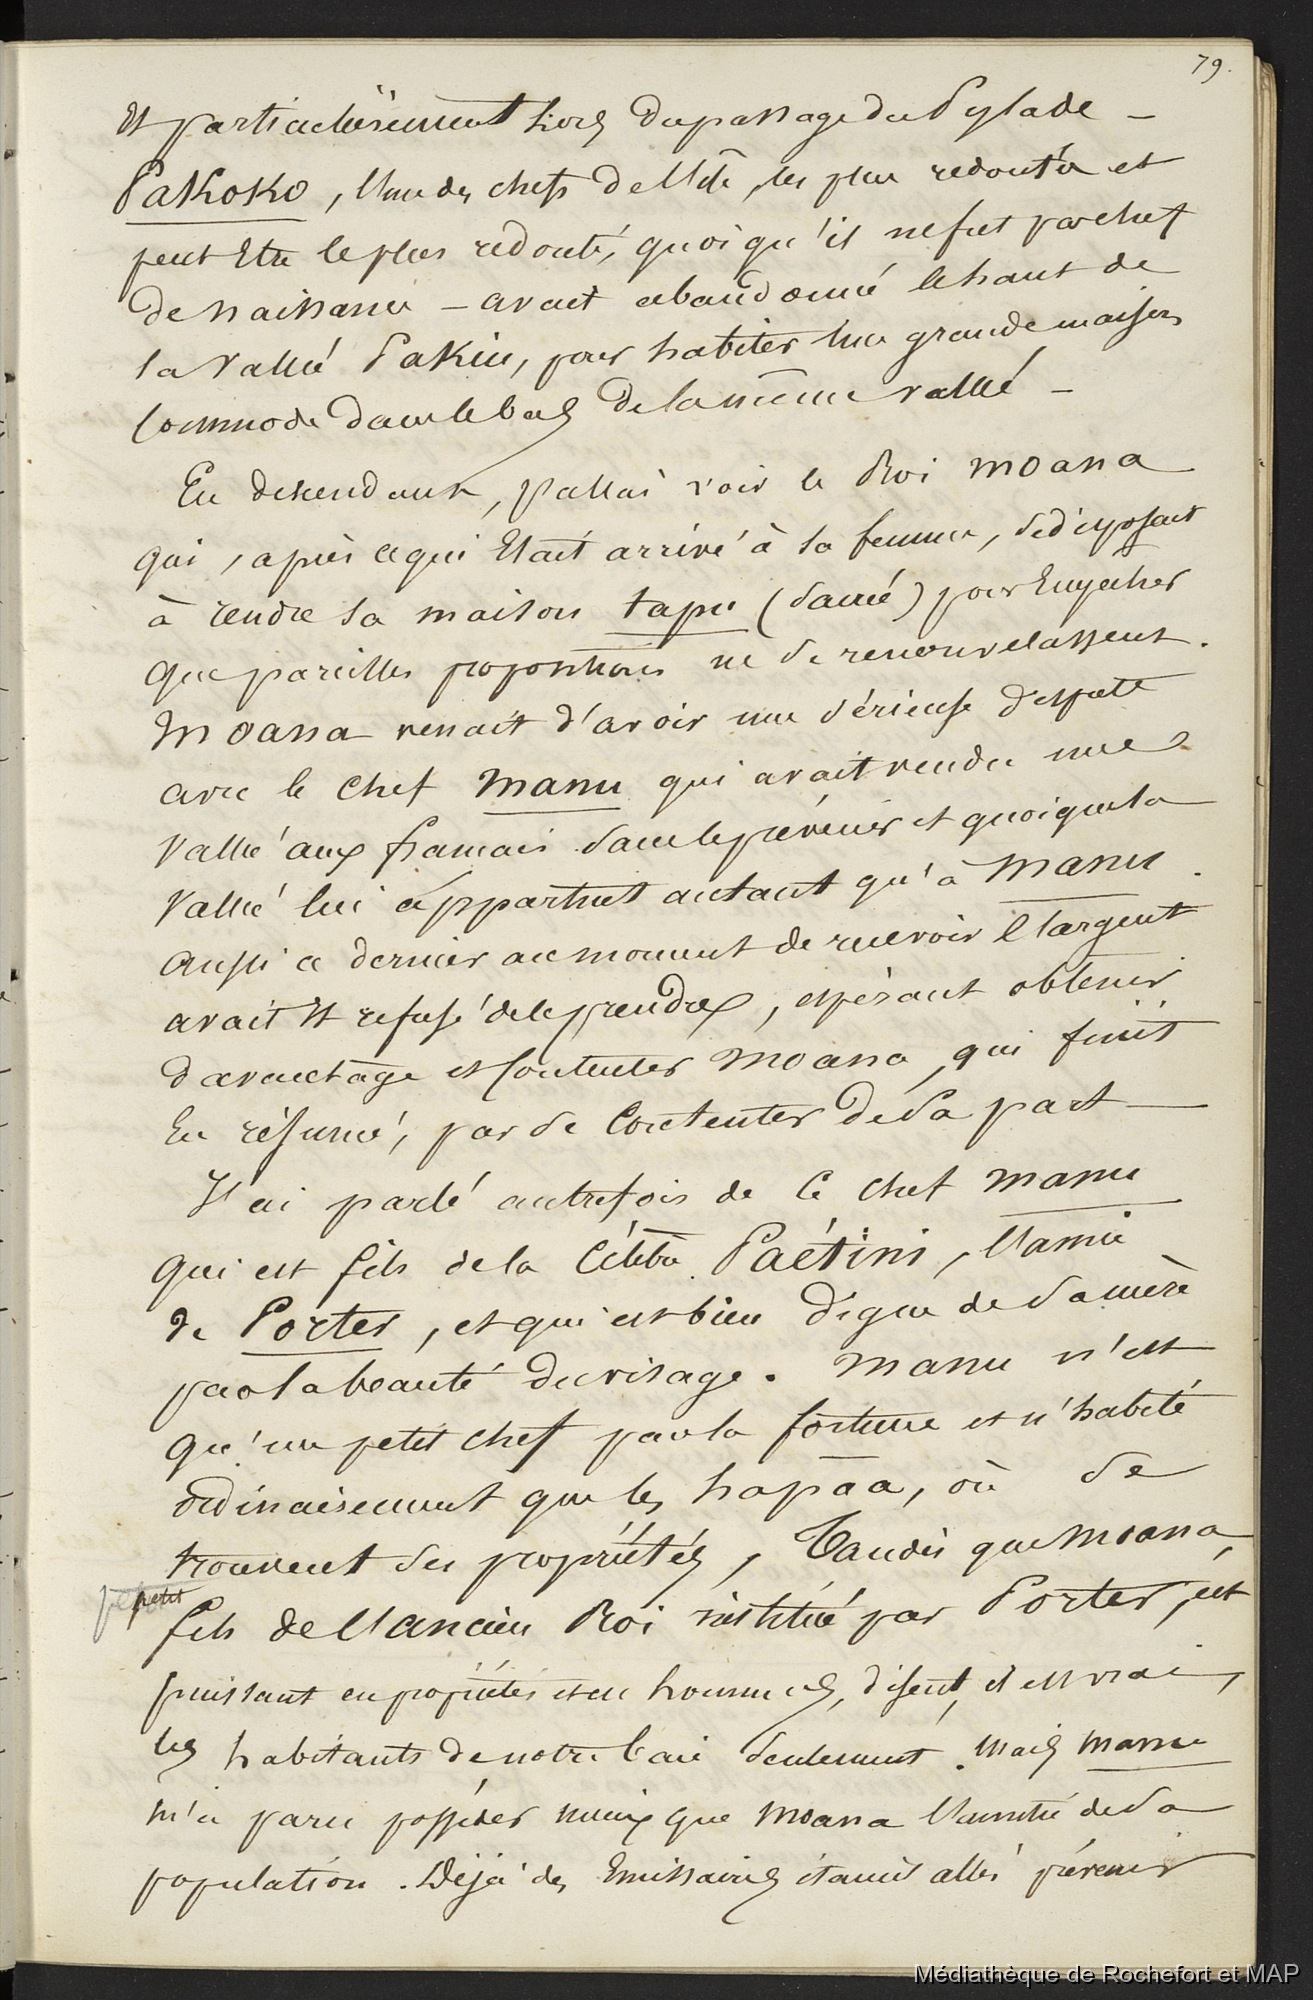 79.
et particulièrement lors du passage du Pylade –
Pakoko, l'un des chefs de l'île, les plus redoutés et
peut être le plus redouté, quoiqu'il ne fut pas chef
de naissance – avait abandonné le haut de
la vallée Pakiu, pour habiter une grande maison
commode dans le bas de la même vallée –
En descendant, j'allai voir le Roi Moana
qui, après ce qui était arrivé à sa femme, se disposait
à rendre sa maison tapu (sacré) pour empêcher
que pareilles propositions ne se renouvelassent.
Moana venait d'avoir une sérieuse dispute
avec le chef Manu qui avait vendu une
vallée aux français sans le prévenir et quoique la
vallée lui appartint autant qu'à Manu.
Aussi ce dernier au moment de recevoir l'argent
avait il refusé de le prendre, espérant obtenir
davantage et contenter Moana, qui finit
en résumé, par se contenter de sa part —
J'ai parlé autrefois de ce chef Manu
qui est fils de la célèbre Paétini, l'amie
de Porter, et qui est bien digne de sa mère
par la beauté du visage. Manu n'est
qu'un petit chef par la fortune et n'habite
ordinairement que les hapaa, où se
trouvent ses propriétés, Tandis que Moana,
petit
fils de l'ancien Roi institué par Porter, est
puissant en propriétés et en hommes, disent, il est vrai,
les habitants de notre baie seulement. Mais Manu
m'a paru posséder mieux que Moana l'amitié de sa
population. Déjà des émissaires étaient allés prévenir
Médiathèque de Rochefort et MAP